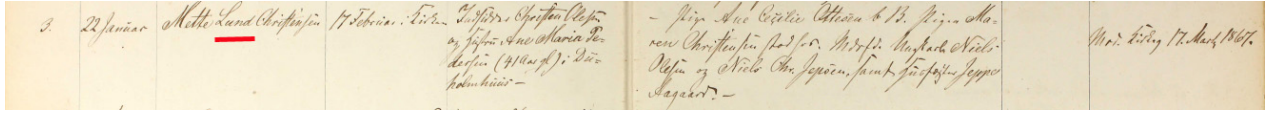 3. 22 Januar Mette Lund Christensen 17 Februar i Kirken Indsidder Christen Olesen
og Hustru Ane Maria Pe-
dersen (41 Aar gl) i Du-
holmhuus —
— Pige Ane Cecilie Ottesen b B. Pigen Ma-
ren Christensen stod hos. Mdsfd. Ungkarle Niels
Olesen og Niels Chr. Jepsen, samt Huusfaster Jeppe
Aagaard. —
Mod. Kirkeg 17. Marts 1867.